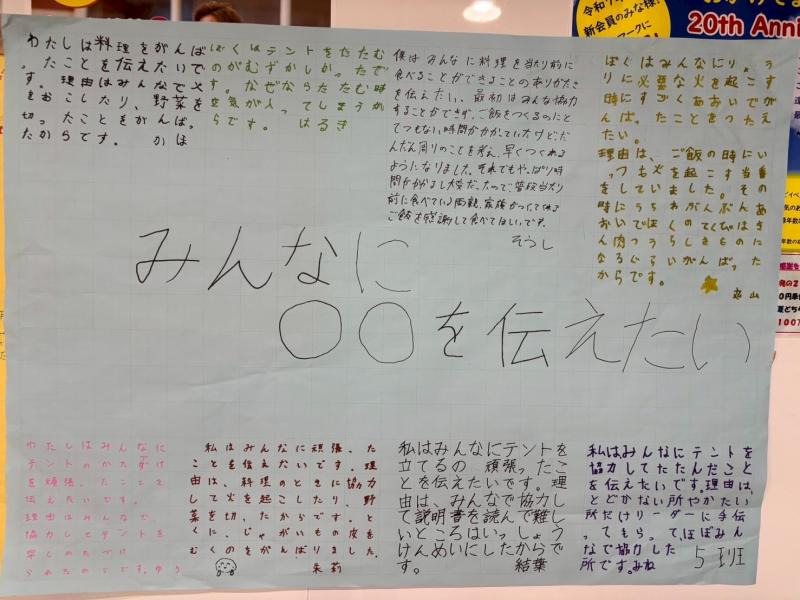 わたしは料理をがんば
ったことを伝えたいで
す。理由はみんなで火
をおこしたり、野菜を
切ったことをがんばっ
たからです。 かほ
ぼくはテントをたたむ
のがむずかしかったで
す。なぜならたたむ時
空気が入ってしまうか
らです。 はるき
僕はみんなに料理を当たり前に
食べることができることのありがたさ
を伝えたい。最初はみんな協力
することができず、ご飯をつくるのにと
てつもない時間がかかっていたけど、だ
んだん周りのことを考え、早くつくれる
ようになりました。それでもやっぱり時
間がかかるし大変だったので、普段当たり
前に食べている両親、家族がつくってくれる
ご飯を感謝して食べてほしいです。
そうし
ぼくはみんなにりょう
りに必要な火を起こす
時にすごくあおいでが
んばったことをつたえ
たい。
理由は、ご飯の時にい
っつも火を起こす当番
をしていました。その
時にうちわがんぶんあ
おいでぼくのてくびはき
ん肉つうらしきものに
なるぐらいがんばった
からです。
みんなに
〇〇を伝えたい
わたしはみんなに
テントのかたづけ
を頑張ったことを
伝えたいです。
理由はみんなで
協力してテントを
早くかたづけ
られたのでです。ゆう
私はみんなに頑張った
ことを伝えたいです。理
由は、料理のときに協力
して火を起こしたり、野
菜を切ったからです。と
くに、じゃがいもの皮を
むくのをがんばりました。
朱莉
私はみんなにテントを
立てるの 頑張ったこ
とを伝えたいです。理
由は、みんなで協力し
て説明書を読んで難し
いところはいっしょう
けんめいにしたからで
す。 結葉
私はみんなにテントを
協力してたたんだこと
を伝えたいです。理由は、
とどかない所やかたい
所だけリーダーに手伝
ってもらって、ほぼみん
なで協力した
所です。みね
5班
新会員のみな様!
20th Anni